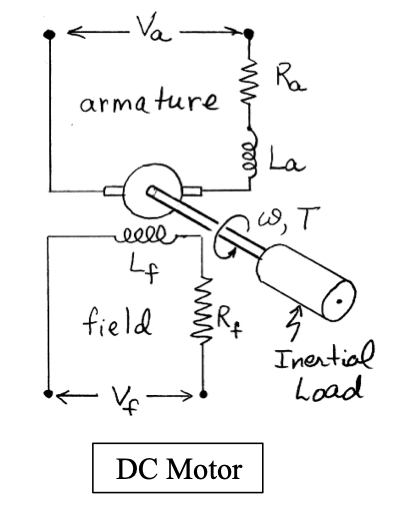 Va
Ra
armature
La
ω, T
Lf
field
Rf
Inertial
Load
Vf
DC Motor